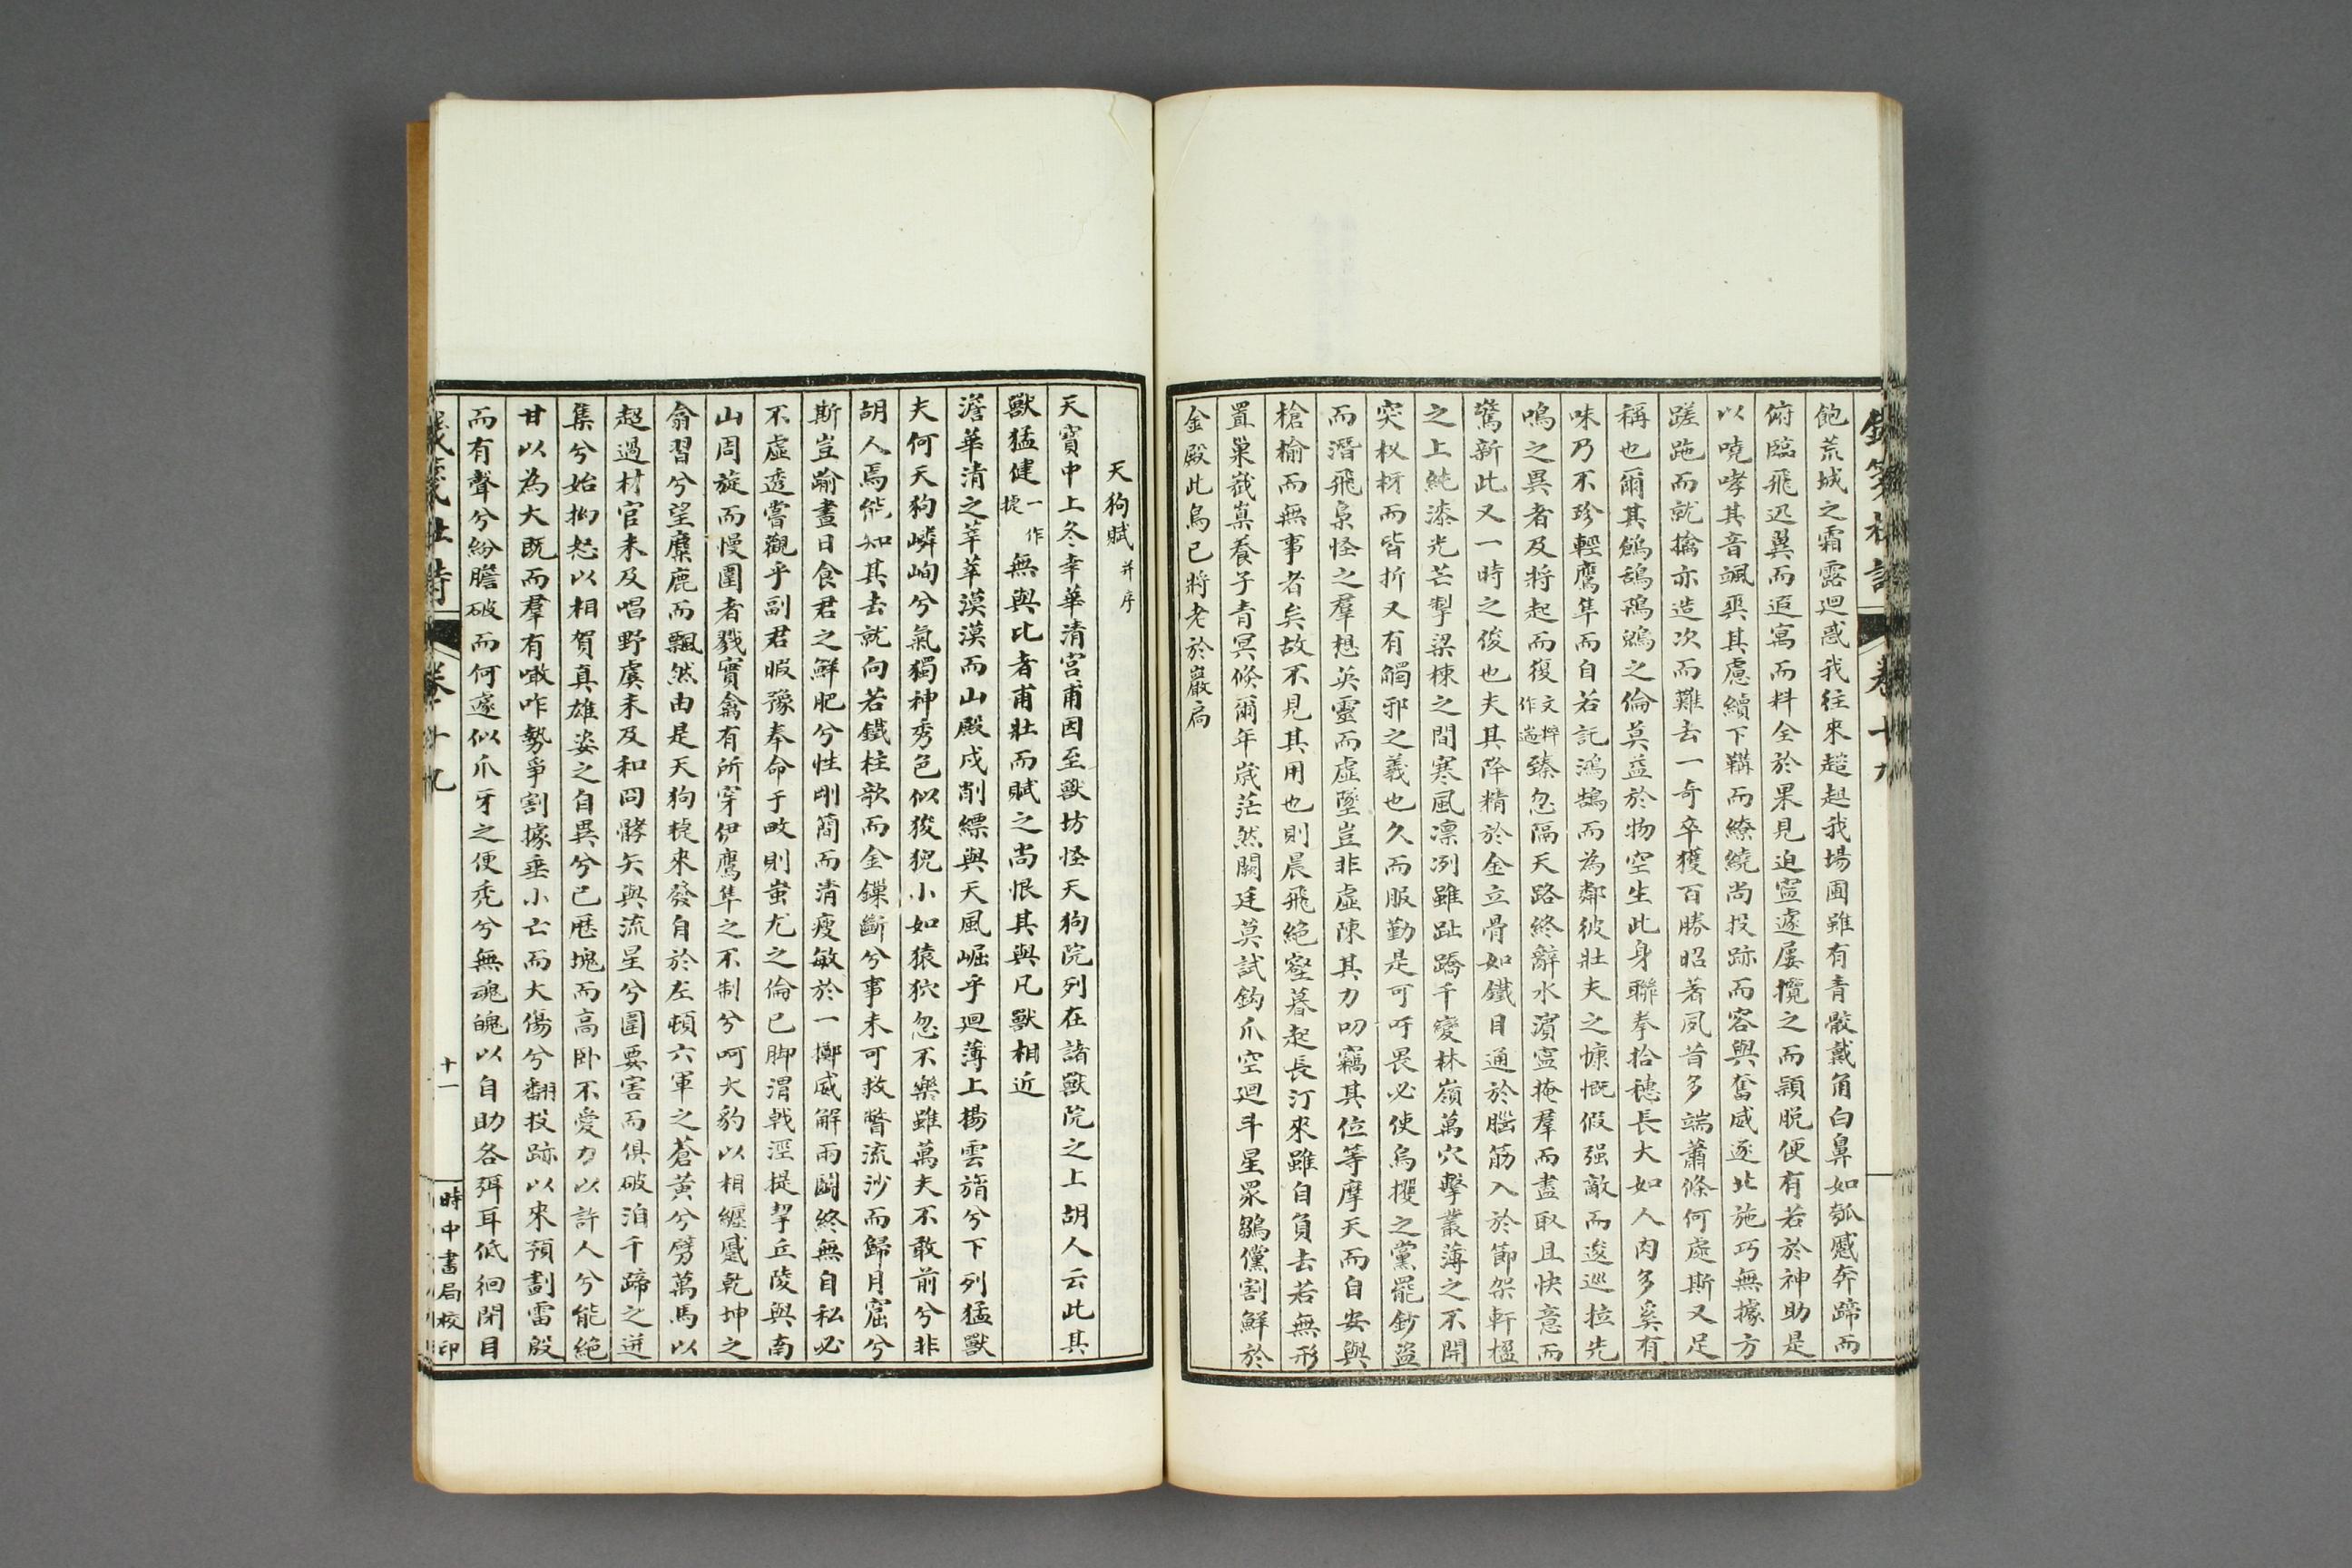 錢箋杜詩 卷十九
飽荒城之霜露迴惑我往來趑趄我場圃雖有青骹戴角白鼻如瓠蹙奔蹄而
俯臨飛迅翼而遐寓而料全於果見迫寧遽屢攬之而穎脫便有若於神助是
以嘵哮其音颯爽其慮續下鞲而繚繞尚投跡而容與奮威逐北施巧無據方
蹉跎而就擒亦造次而難去一奇卒獲百勝昭著夙昔多端蕭條何處斯又足
稱也爾其鶬鴰鴇鶂之倫莫益於物空生此身聯拳拾穗長大如人肉多奚有
味乃不珍輕鷹隼而自若託鴻鵠而為鄰彼壯夫之慷慨假强敵而逡巡拉先
鳴之異者及將起而復文粹作遄臻忽隔天路終辭水濱寧掩羣而盡取且快意而
驚新此又一時之俊也夫其降精於金立骨如鐵目通於腦筋入於節架軒楹
之上純漆光芒掣梁棟之間寒風凛冽雖趾蹻千變林嶺萬穴擊叢薄之不開
突杈枒而皆折又有觸邪之義也久而服勤是可吁畏必使烏攫之黨罷鈔盜
而潛飛梟怪之羣想英靈而虛墜豈非虛陳其力叨竊其位等摩天而自安與
槍榆而無事者矣故不見其用也則晨飛絕壑暮起長汀來雖自負去若無形
置巢嶻嵲養子青冥倏爾年歲茫然闕廷莫試鈎爪空迴斗星眾雛儻割鮮於
金殿此烏已將老於巖扃
天狗賦并序
天寶中上冬幸華清宮甫因至獸坊怪天狗院列在諸獸院之上胡人云此其
獸猛健一作捷無與比者甫壯而賦之尚恨其與凡獸相近
澹華清之莘莘漠漠而山殿戍削縹與天風崛乎迴薄上揚雲旓兮下列猛獸
夫何天狗嶙峋兮氣獨神秀色似狻猊小如猿狖忽不樂雖萬夫不敢前兮非
胡人焉能知其去就向若鐵柱欹而金鏁斷兮事未可救瞥流沙而歸月窟兮
斯豈踰晝日食君之鮮肥兮性剛簡而清瘦敏於一擲威解兩鬬終無自私必
不虛透嘗觀乎副君暇豫奉命于畋則蚩尤之倫已脚渭戟涇提挈丘陵與南
山周旋而慢圍者戮實禽有所穿伊鷹隼之不制兮呵犬豹以相纏蹙乾坤之
翕習兮望麋鹿而飄然由是天狗㨗來發自於左頓六軍之蒼黃兮劈萬馬以
超過材官未及唱野虞未及和冏髇矢與流星兮圍要害而俱破洎千蹄之迸
集兮始拗怒以相賀真雄姿之自異兮已歷塊而高卧不愛力以許人兮能絕
甘以為大既而羣有噉咋勢爭割據垂小亡而大傷兮翻投跡以來預劃雷殷
而有聲兮紛膽破而何遽似爪牙之便禿兮無魂魄以自助各弭耳低徊閉目
錢箋杜詩 卷十九 十一 時中書局校印